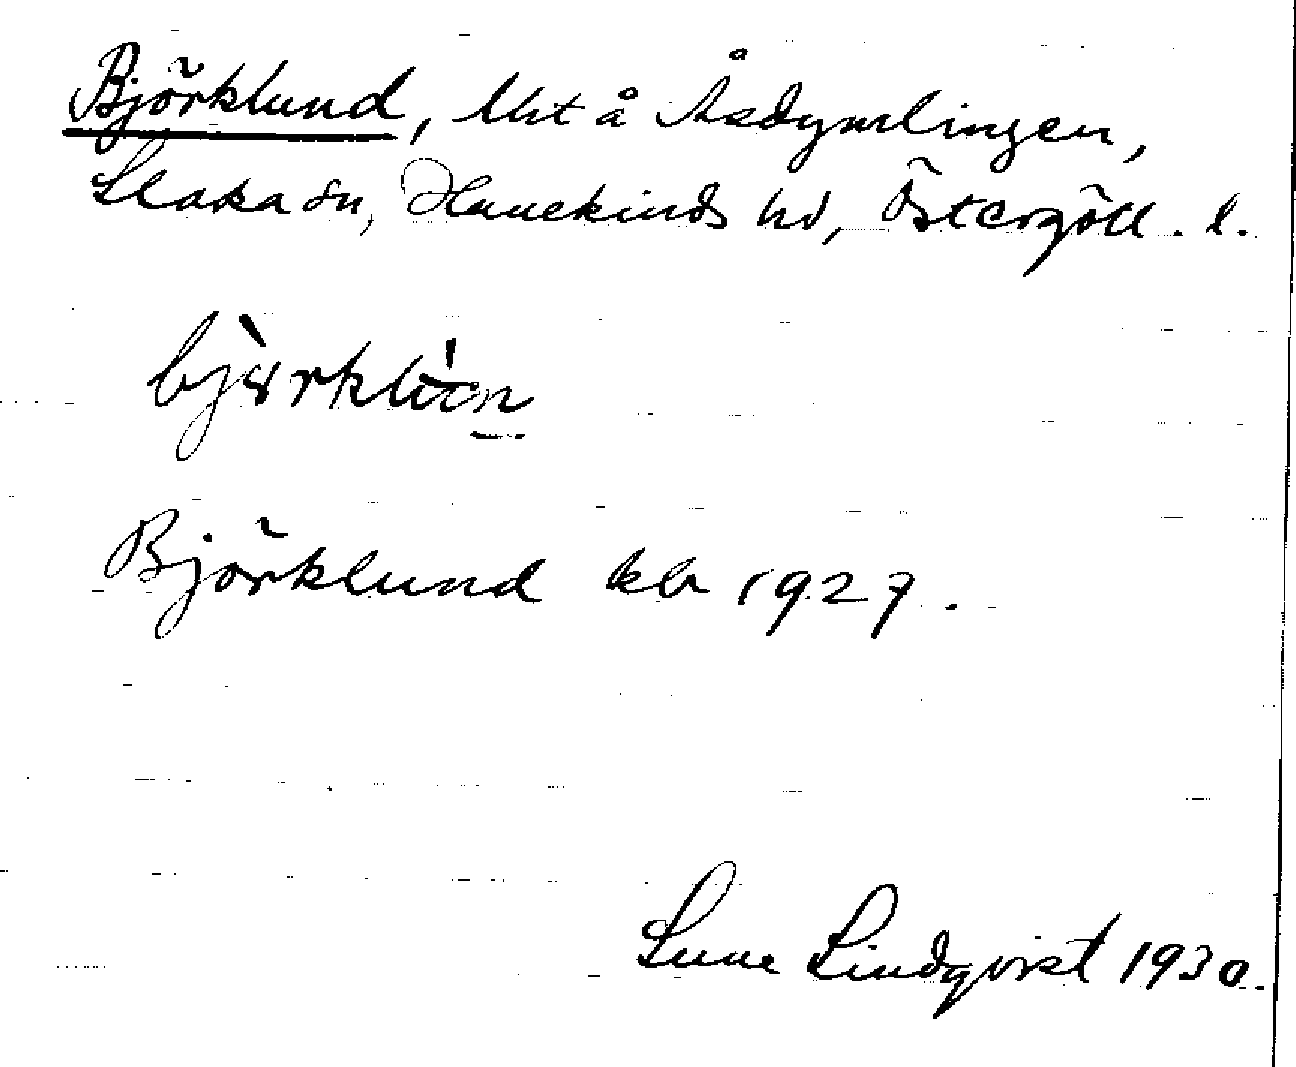 Björklund, lht å Åsdymlingen,
Slaka sn, Hanekinds hd, Östergötl. l.
Björklund kb 1927.
Sune Lindqvist 1930.